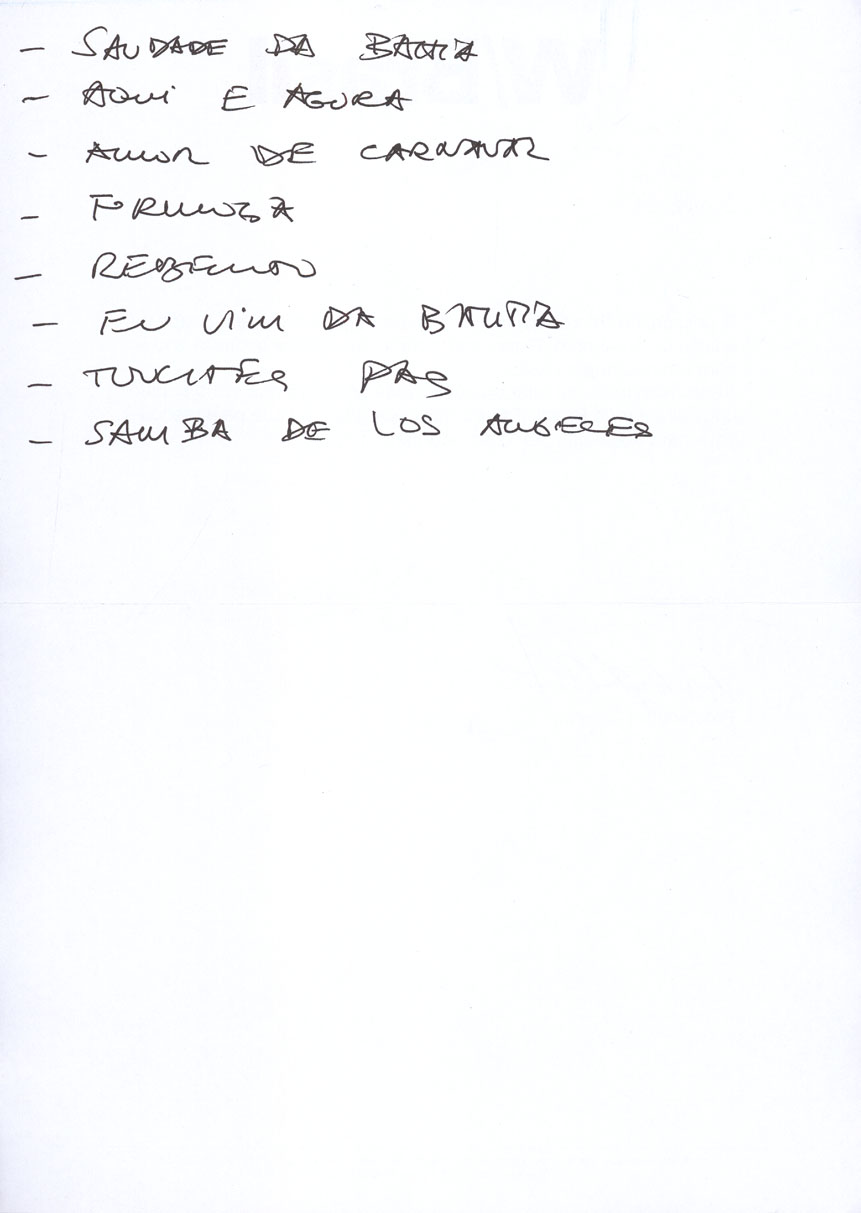 - SAUDADE DA BAHIA
- AQUI E AGORA
- AMOR DE CARNAVAL
- FORMOSA
- REBENTO
- EU VIM DA BAHIA
- PAG
- SAMBA DE LOS ANGELES